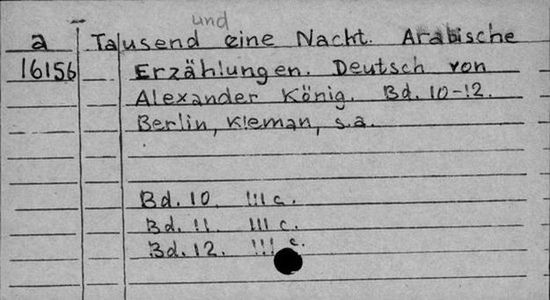 und
a Tausend eine Nacht. Arabische
16156 Erzählungen. Deutsch von
Alexander König. Bd. 10-12.
Berlin, Kleman, s.a.
Bd. 10. III c.
Bd. 11. III c.
Bd. 12. III c.